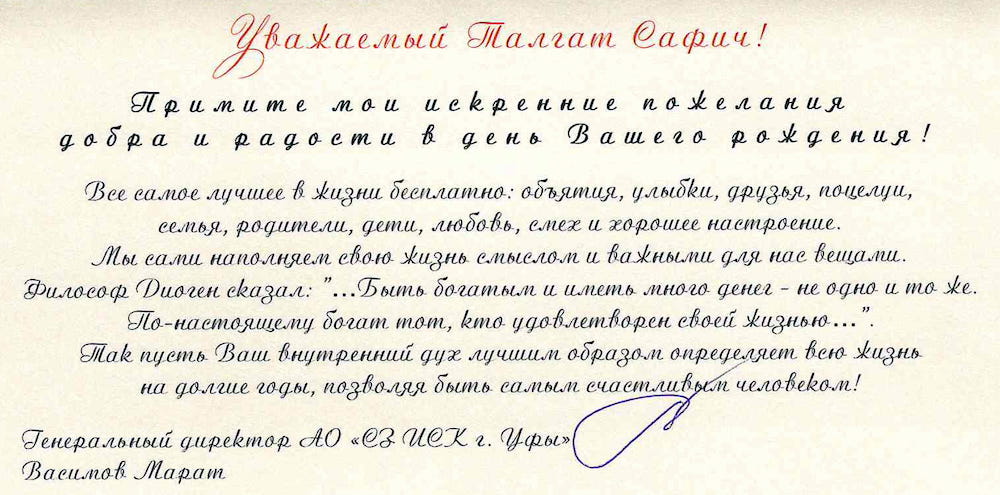 Уважаемый Талгат Сафич!
Примите мои искренние пожелания
добра и радости в день Вашего рождения!
Все самое лучшее в жизни бесплатно: объятия, улыбки, друзья, поцелуи,
семья, родители, дети, любовь, смех и хорошее настроение.
Мы сами наполняем свою жизнь смыслом и важными для нас вещами.
Философ Диоген сказал: "...Быть богатым и иметь много денег - не одно и то же.
По-настоящему богат тот, кто удовлетворен своей жизнью...".
Так пусть Ваш внутренний дух лучшим образом определяет всю жизнь
на долгие годы, позволяя быть самым счастливым человеком!
Генеральный директор АО «СЗ ИСК г. Уфы»
Васимов Марат